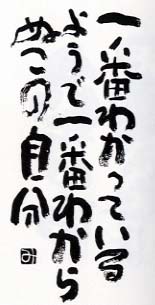 一番わかっている
ようで一番わから
ぬこの自分